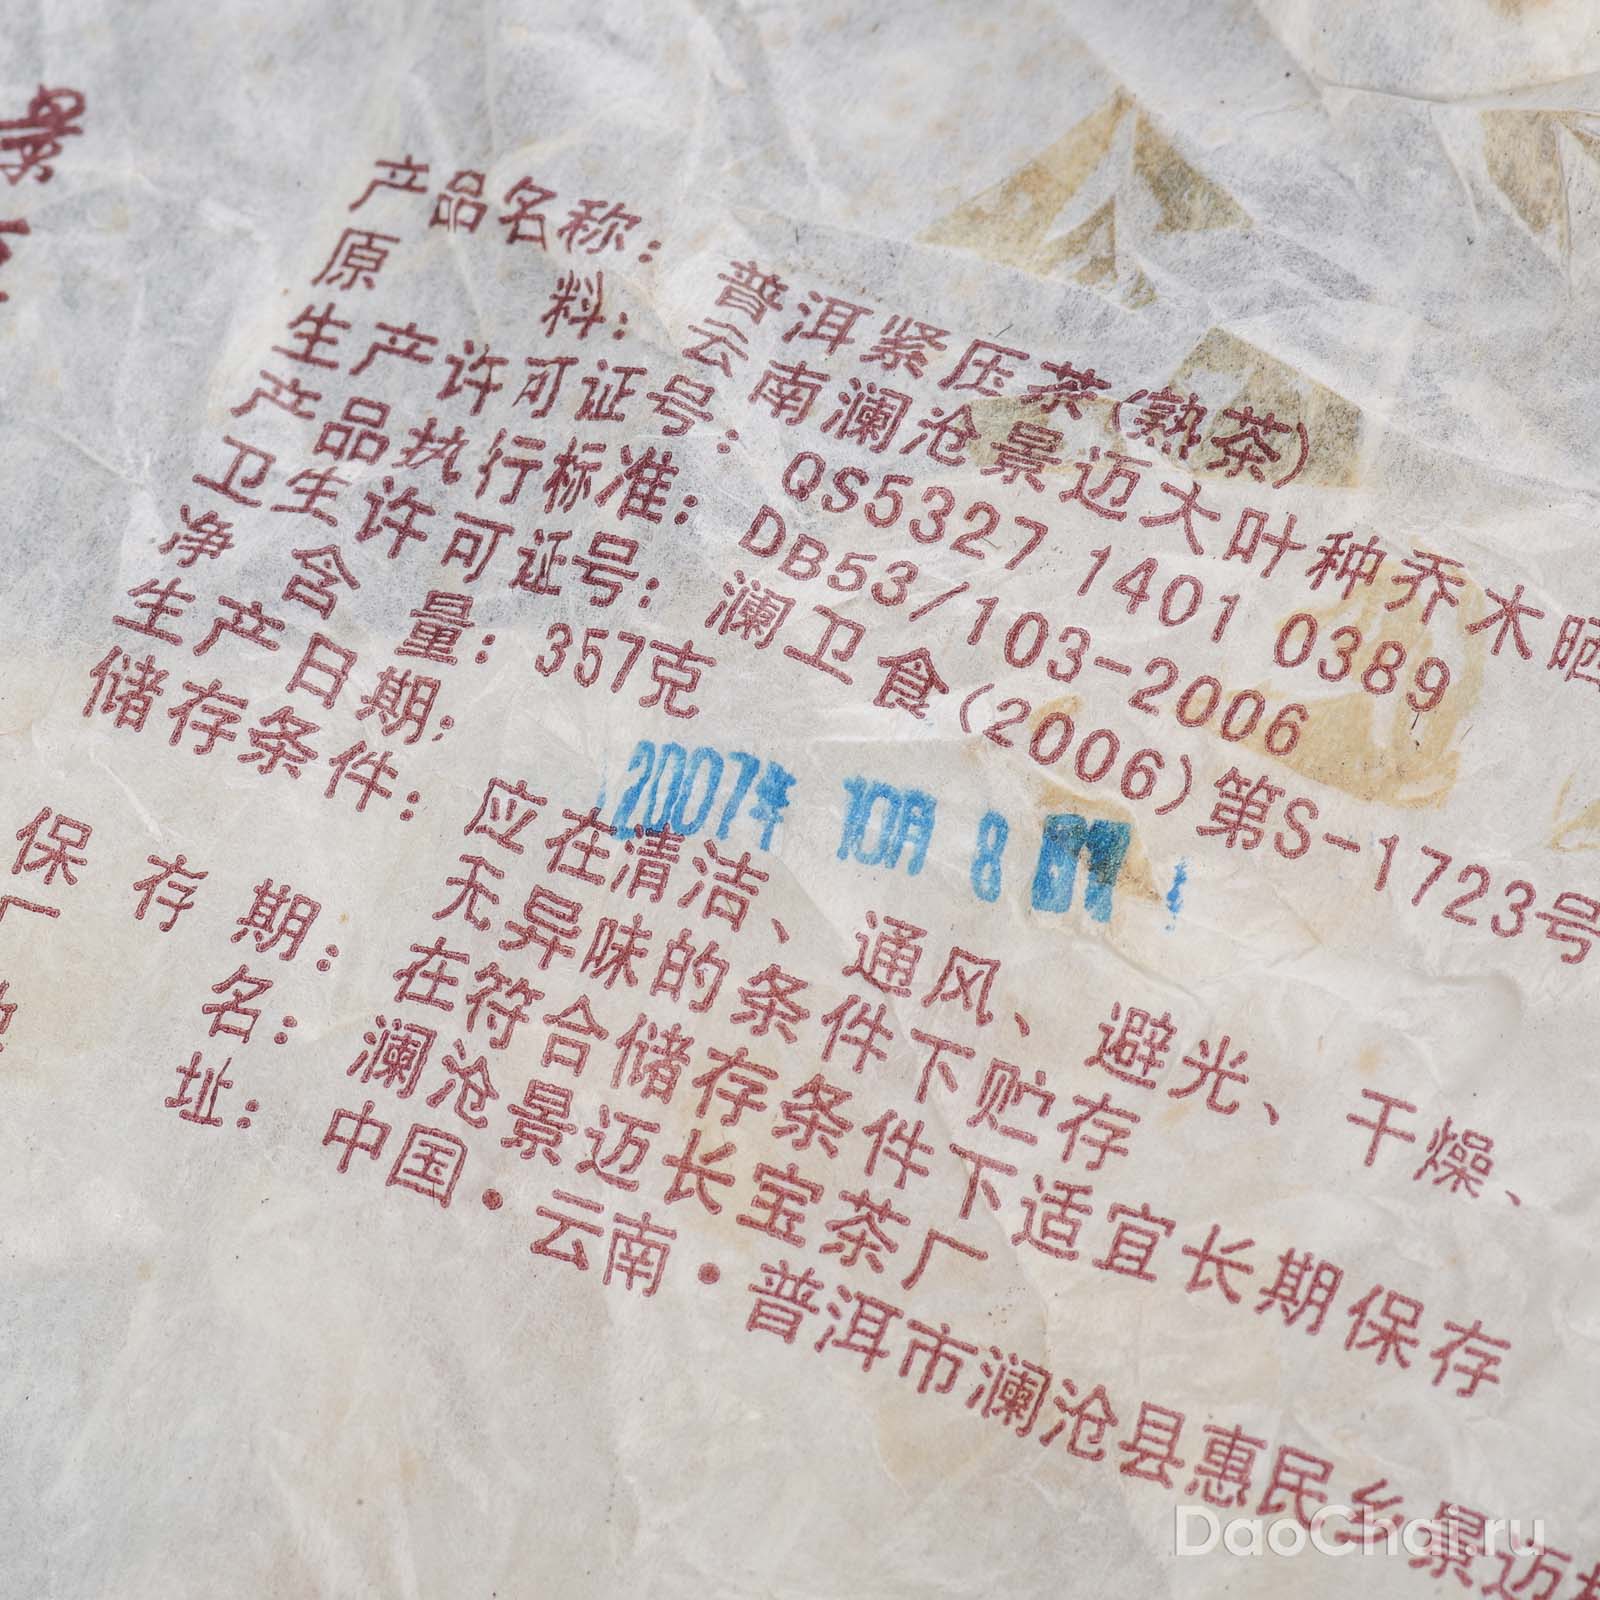 景
产品名称：普洱紧压茶(熟茶)
原料：云南澜沧景迈大叶种乔木晒
生产许可证号：QS5327 1401 0389
产品执行标准：DB53/103-2006
卫生许可证号：澜卫食(2006)第S-1723号
净含量：357克
生产日期：2007年 10月 8
储存条件：应在清洁、通风、避光、干燥、
无异味的条件下贮存
保存期：在符合储存条件下适宜长期保存
厂名：澜沧景迈长宝茶厂
址：中国·云南·普洱市澜沧县惠民乡景迈
DaoChai.ru